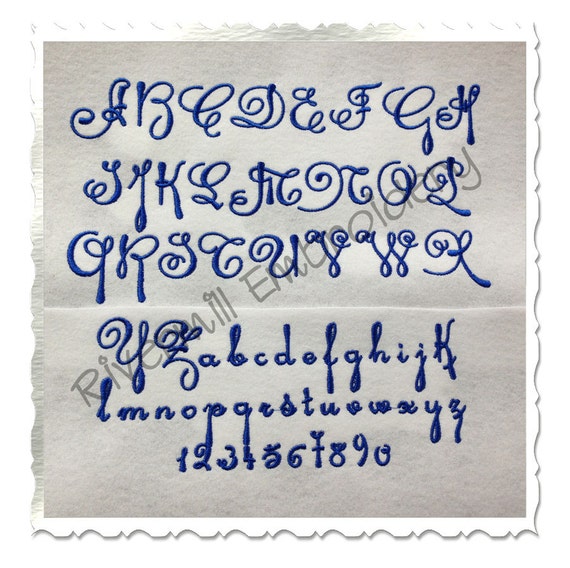 ABCDEFGH
IJKLMNOP
QRSTUVWX
YZabcdefghijk
lmnopqrstuvwxyz
1234567890
Rivermill Embroidery